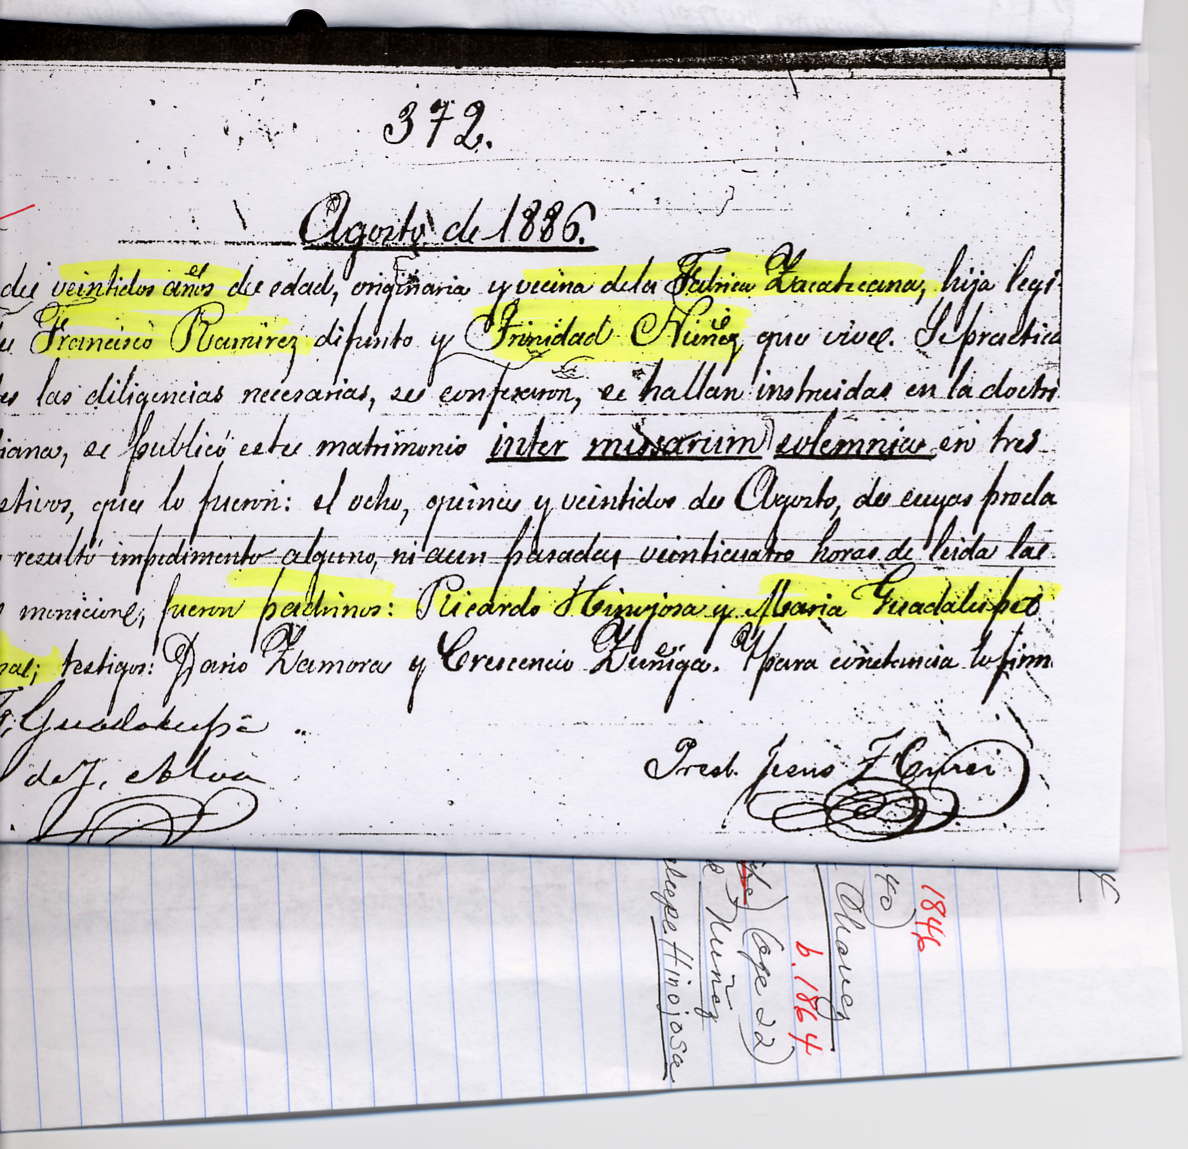 372.
Agosto de 1886.
de veintidos años de edad, originaria y vecina de la Fabrica Zacatecana, hija legi-
Francisco Ramirez difunto y Trinidad Nuñez, que vive. Se practica
las diligencias necesarias, se confesaron, se hallan instruidos en la doctri
iana, se publicó este matrimonio inter missarum solemnia en tres
stivos, que lo fueron: el ocho, quince y veintidos de Agosto, de cuyas procla
resultó impedimento alguno, ni aun pasadas veinticuatro horas de leida las
moniciones, fueron padrinos: Ricardo Hinojosa y Maria Guadalupe
testigos: Dario Zamora y Crescencio Zuñiga. Y para constancia lo firm
Guadalupe
de J. Alva
Presb. Jesus
1846
40)
Chavez
b. 1864
(age 22)
Nuñez
Hinojosa